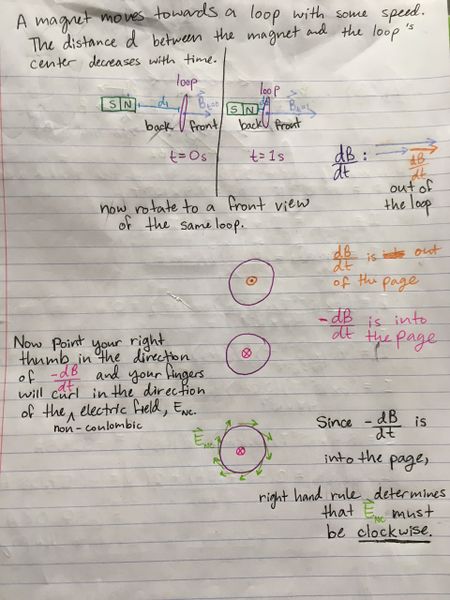 A magnet moves towards a loop with some speed.
The distance d between the magnet and the loop's
center decreases with time.
loop
S N
d
B t=0
back front
t=0s
loop
S N
d
B t=1
back front
t=1s
dB/dt :
dB/dt
out of
the loop
now rotate to a front view
of the same loop.
dB/dt is out
of the page
-dB/dt is into
the page
Now point your right
thumb in the direction
of -dB/dt and your fingers
will curl in the direction
of the ^ electric field, E NC.
non-coulombic
E NC
Since -dB/dt is
into the page,
right hand rule determines
that E NC must
be clockwise.